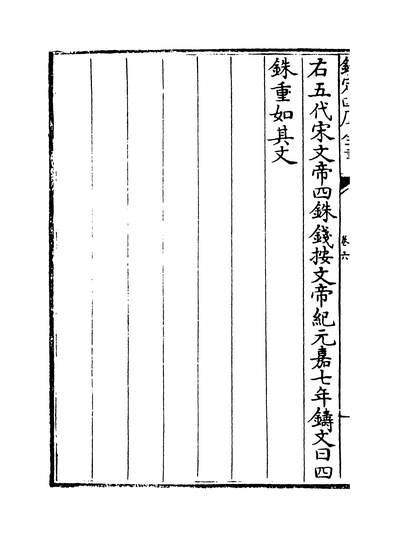 欽定四庫全書
卷六
右五代宋文帝四銖錢按文帝紀元嘉七年鑄文曰四
銖重如其文